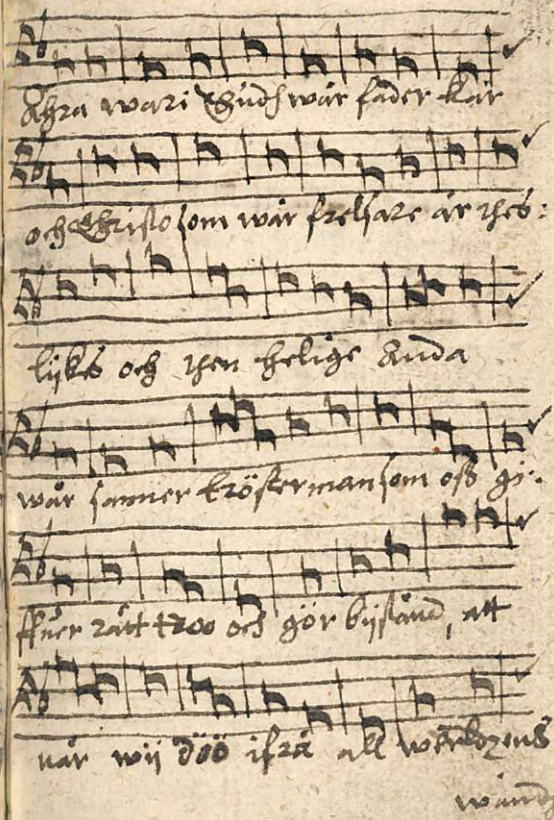 Ähra wari Gudh wår fader kär
och Christo som wår frelsare är thes:
lijkes och then helige Anda
wår sanner tröster man som oss gi:
ffuer rätt troo och gör bijstånd, att
när wij döö ifrå all werldzens